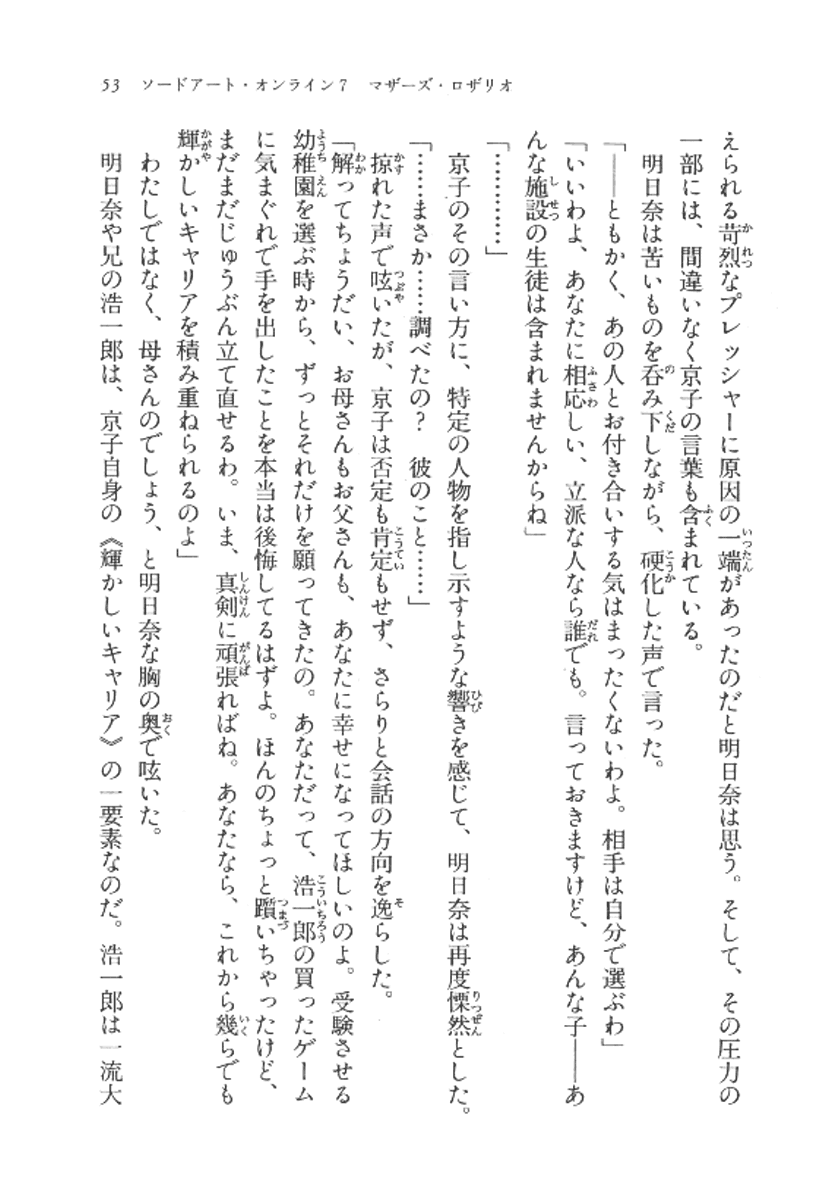 53　ソードアート・オンライン7　マザーズ・ロザリオ
えられる苛烈なプレッシャーに原因の一端があったのだと明日奈は思う。そして、その圧力の
一部には、間違いなく京子の言葉も含まれている。
　明日奈は苦いものを呑み下しながら、硬化した声で言った。
「――ともかく、あの人とお付き合いする気はまったくないわよ。相手は自分で選ぶわ」
「いいわよ、あなたに相応しい、立派な人なら誰でも。言っておきますけど、あんな子――あ
んな施設の生徒は含まれませんからね」
「…………」
　京子のその言い方に、特定の人物を指し示すような響きを感じて、明日奈は再度慄然とした。
「……まさか……調べたの？　彼のこと……」
　掠れた声で呟いたが、京子は否定も肯定もせず、さらりと会話の方向を逸らした。
「解ってちょうだい、お母さんもお父さんも、あなたに幸せになってほしいのよ。受験させる
幼稚園を選ぶ時から、ずっとそれだけを願ってきたの。あなただって、浩一郎の買ったゲーム
に気まぐれで手を出したことを本当は後悔してるはずよ。ほんのちょっと躓いちゃったけど、
まだまだじゅうぶん立て直せるわ。いま、真剣に頑張ればね。あなたなら、これから幾らでも
輝かしいキャリアを積み重ねられるのよ」
　わたしではなく、母さんのでしょう、と明日奈な胸の奥で呟いた。
　明日奈や兄の浩一郎は、京子自身の《輝かしいキャリア》の一要素なのだ。浩一郎は一流大